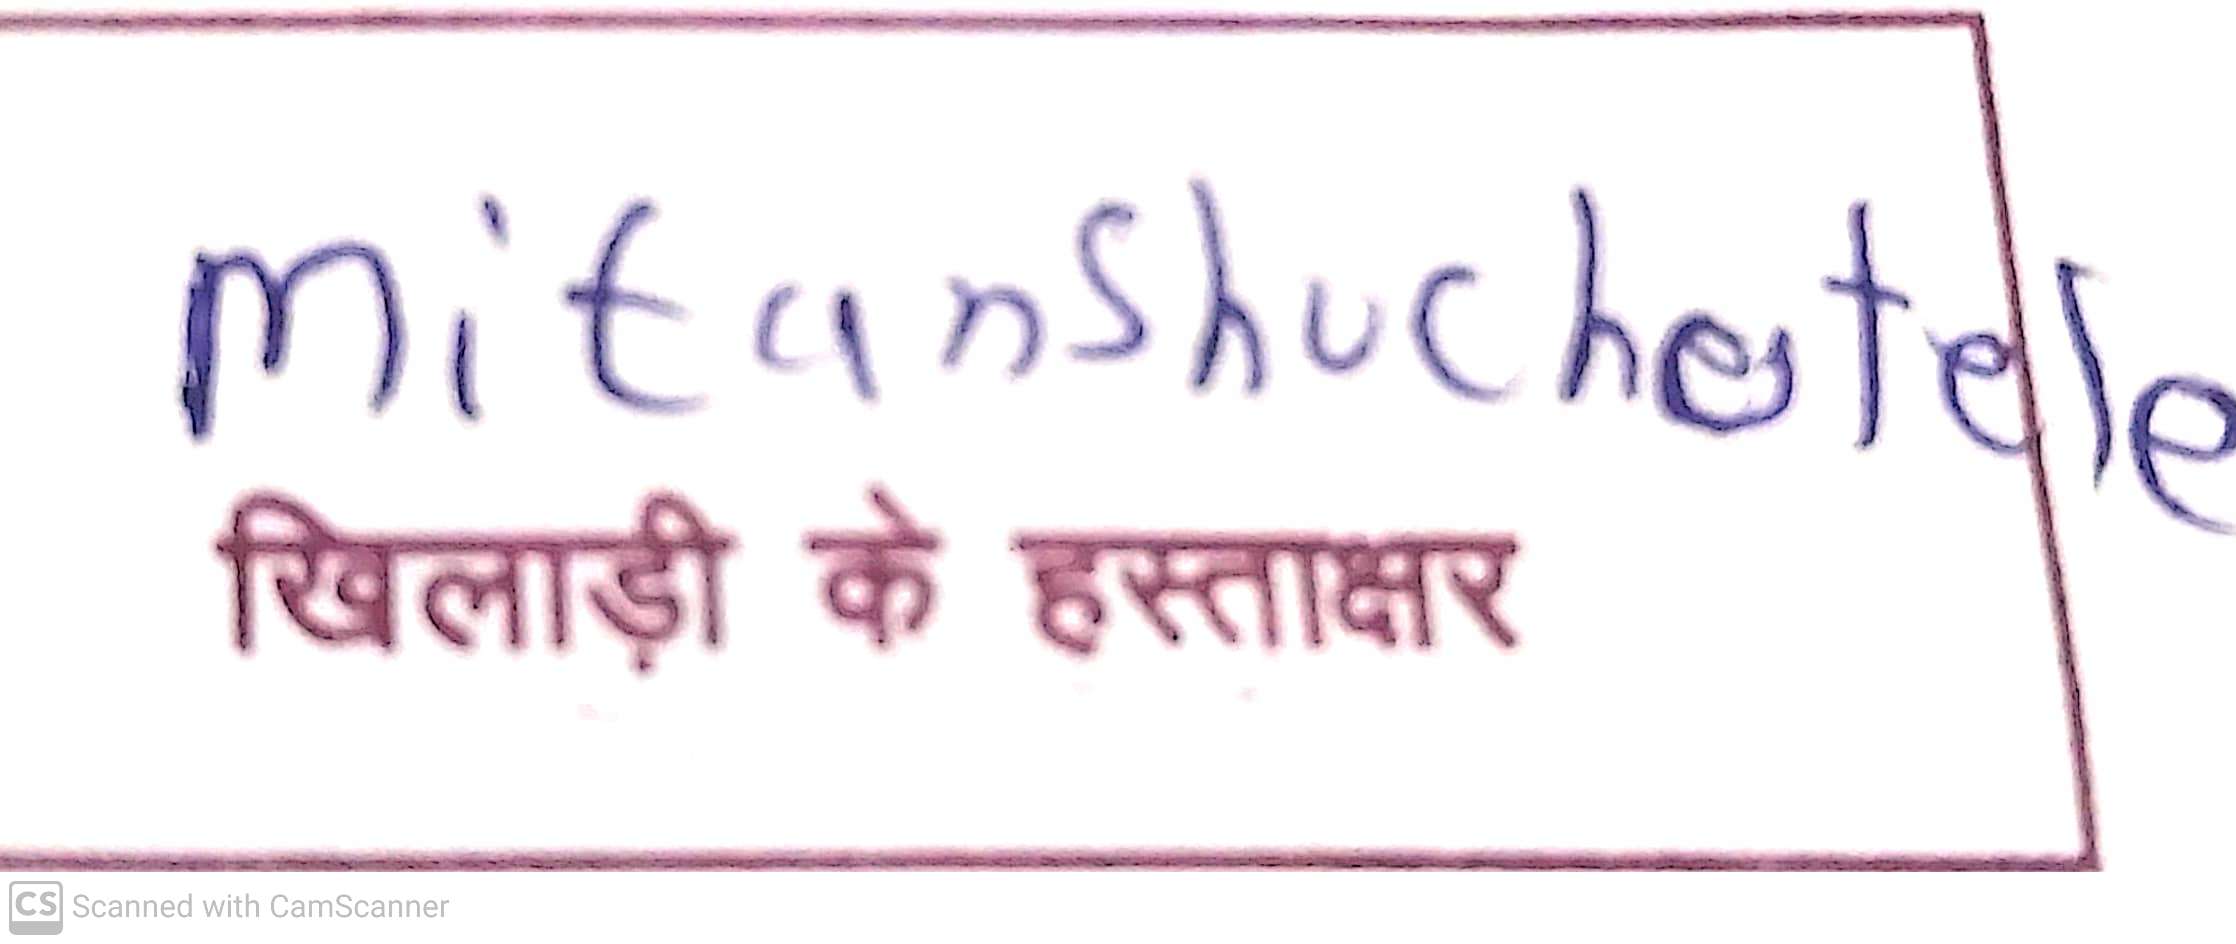 MitanShuchatele
खिलाड़ी के हस्ताक्षर
CS Scanned with CamScanner